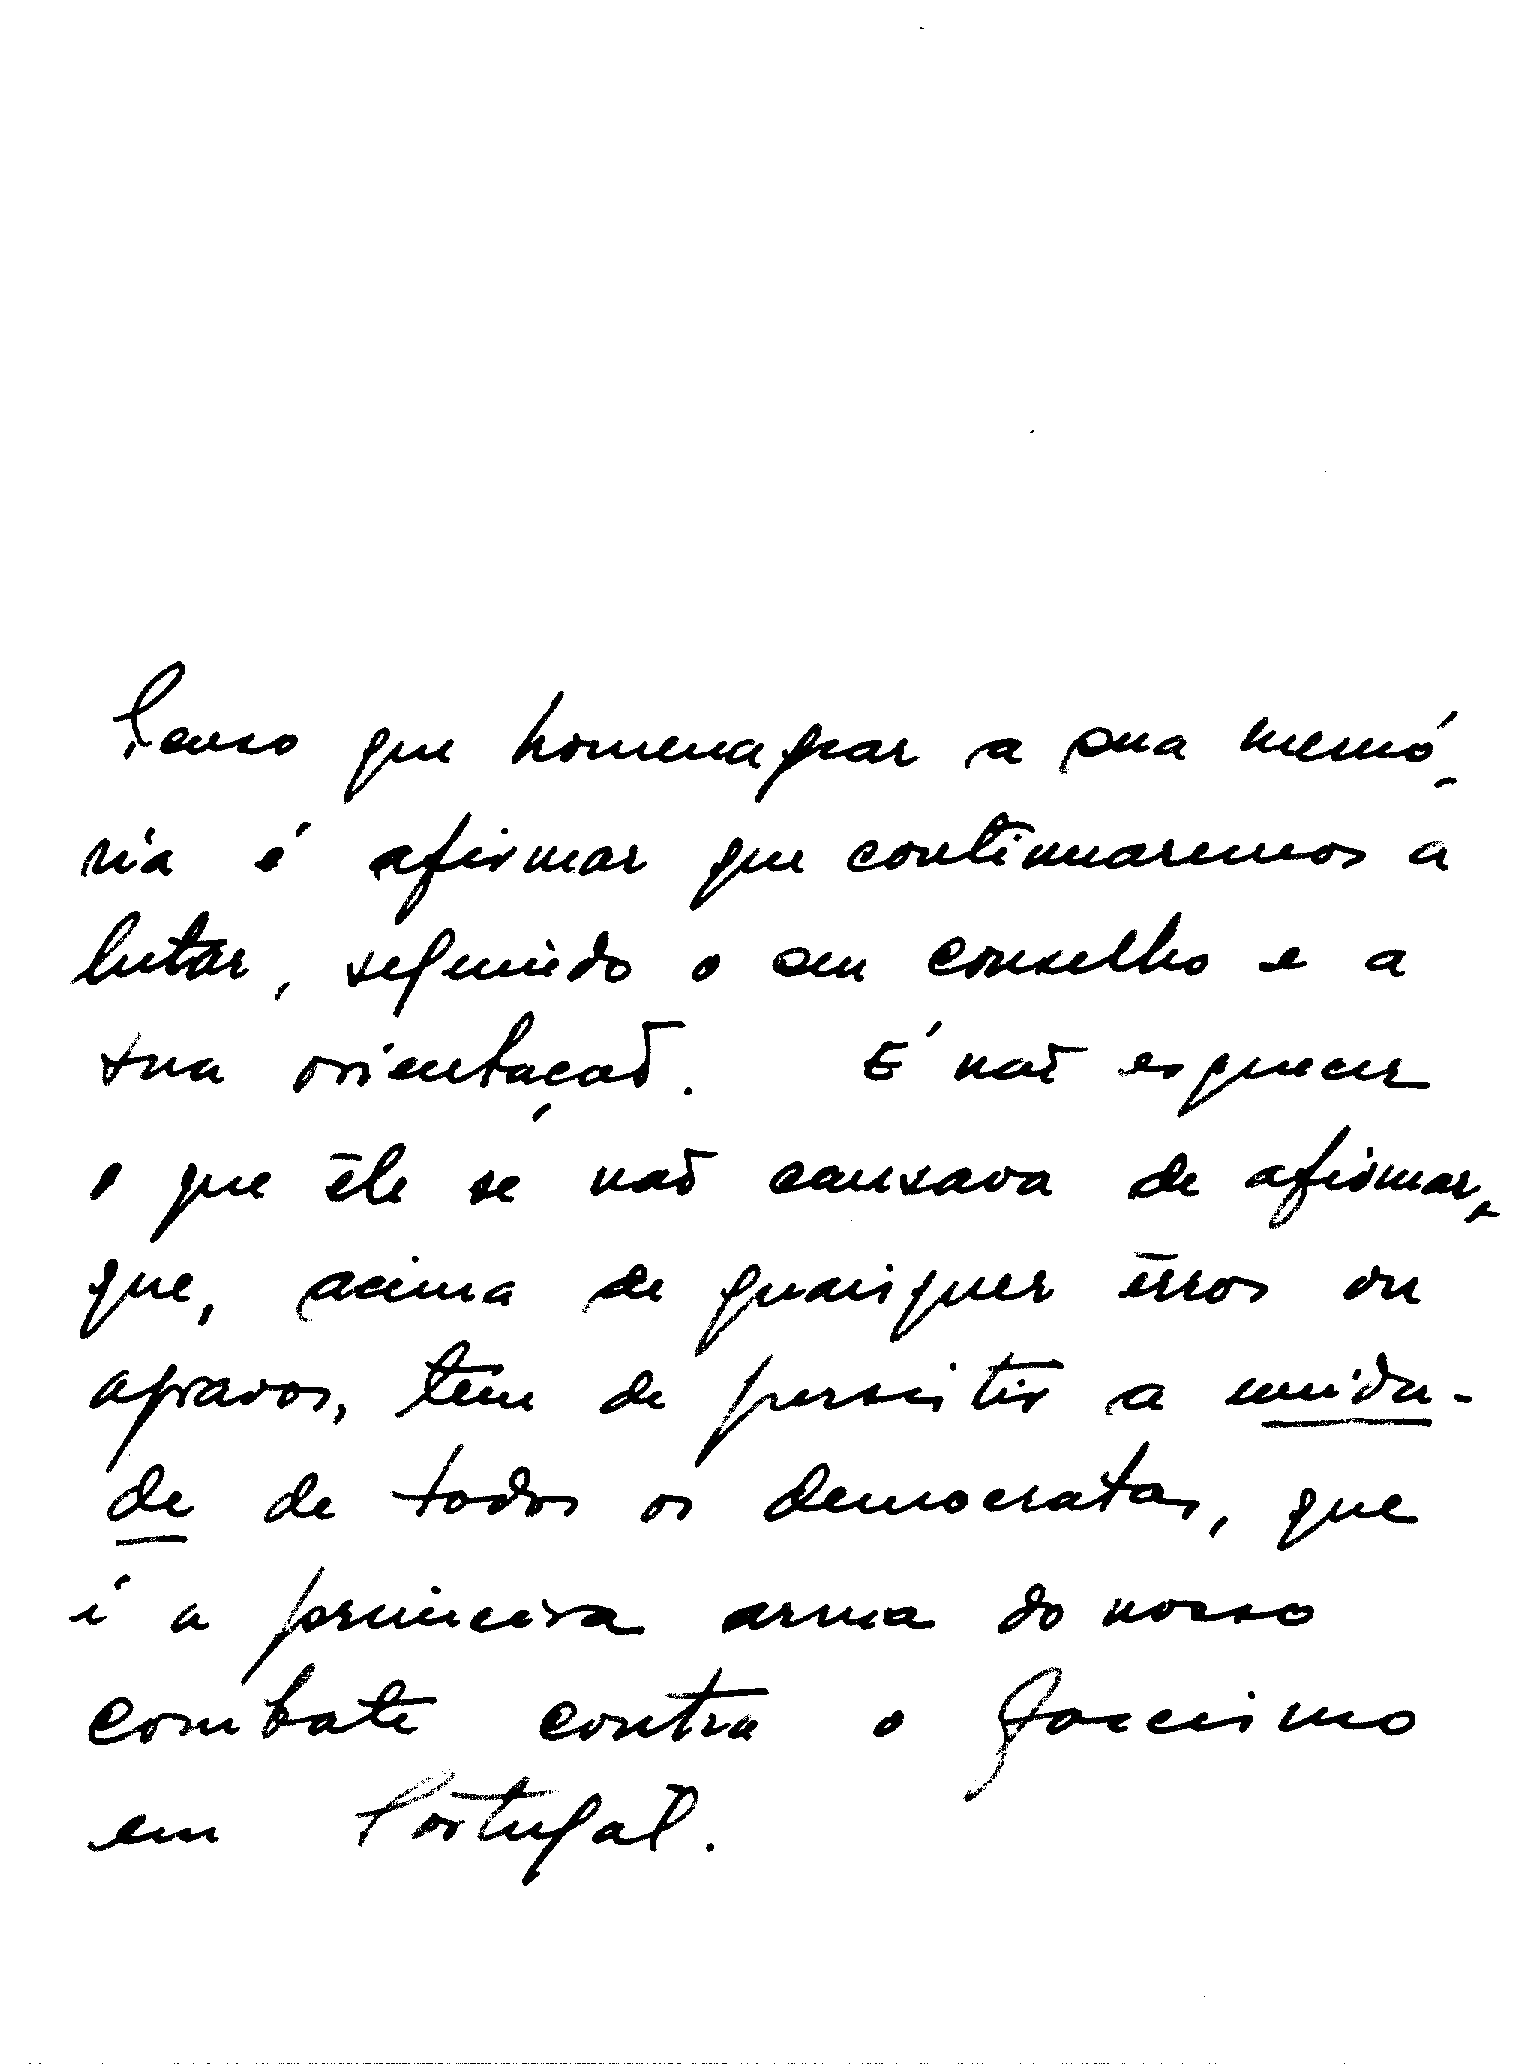 Penso que homenagear a sua memó-
ria é afirmar que continuaremos a
lutar, seguindo o seu conselho e a
sua orientação. É não esquecer
o que êle se não cansava de afirmar,
que, acima de quaisquer êrros ou
agravos, tem de persistir a unida-
de de todos os democratas, que
é a primeira arma do nosso
combate contra o fascismo
em Portugal.